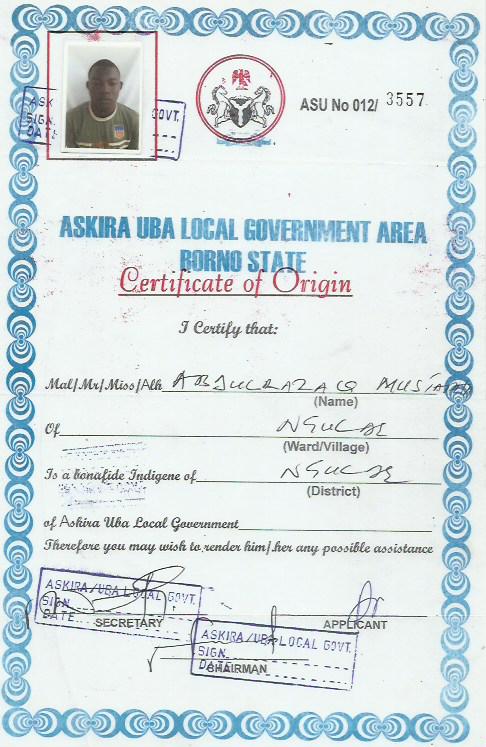 ASK GOVT.
SIGN.
DATE
ASU No 012/ 3557
ASKIRA UBA LOCAL GOVERNMENT AREA
BORNO STATE
Certificate of Origin
I Certify that:
Mal/Mr/Miss/Alh ABDULRAZAQ
(Name)
Of
(Ward/Village)
Is a bonafide Indigene of
(District)
of Askira Uba Local Government
Therefore you may wish to render him/her any possible assistance
ASKIRA/UBA LOCAL GOVT.
SIGN
DATE
SECRETARY
APPLICANT
ASKIRA/UBA LOCAL GOVT.
SIGN
DATE
CHAIRMAN